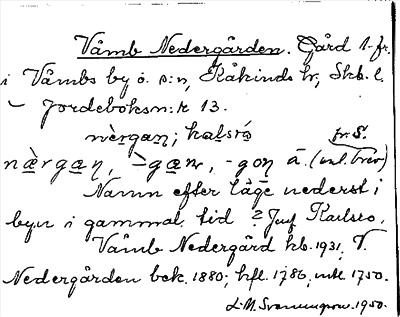 Våmb Nedergården. Gård 1-fr.
i Våmbs by o. s:n, Kåkinds hr, Skb. l.
– Jordeboksn:r 13.
nèrgaŋ; kalsrò
fr S.
nærgaŋ, -gæn, -goŋ ā. (enl.
Namn efter läge nederst i
byn i gammal tid ? Jmf Karlsro,
Våmb Nedergård kb. 1931, T.
Nedergården bek. 1880; hfl. 1786, mtl. 1750.
L. M. Svenungson. 1950.